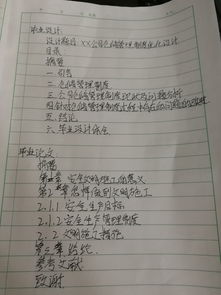 毕业设计
设计题目：XX公司仓储管理制度优化设计
目录
摘要
一、引言
二、仓储管理制度
三、公司仓储管理制度现状及问题分析
四、针对仓储管理制度过程中存在的问题的改进
五、结论
六、毕业设计体会
毕业论文
摘要
第一章 安全文明施工的意义
第2章 怎样做到文明施工
2.1.1 安全生产目标
2.1.2 安全生产管理制度
2.2 文明施工措施
第六章 结论
参考文献
致谢